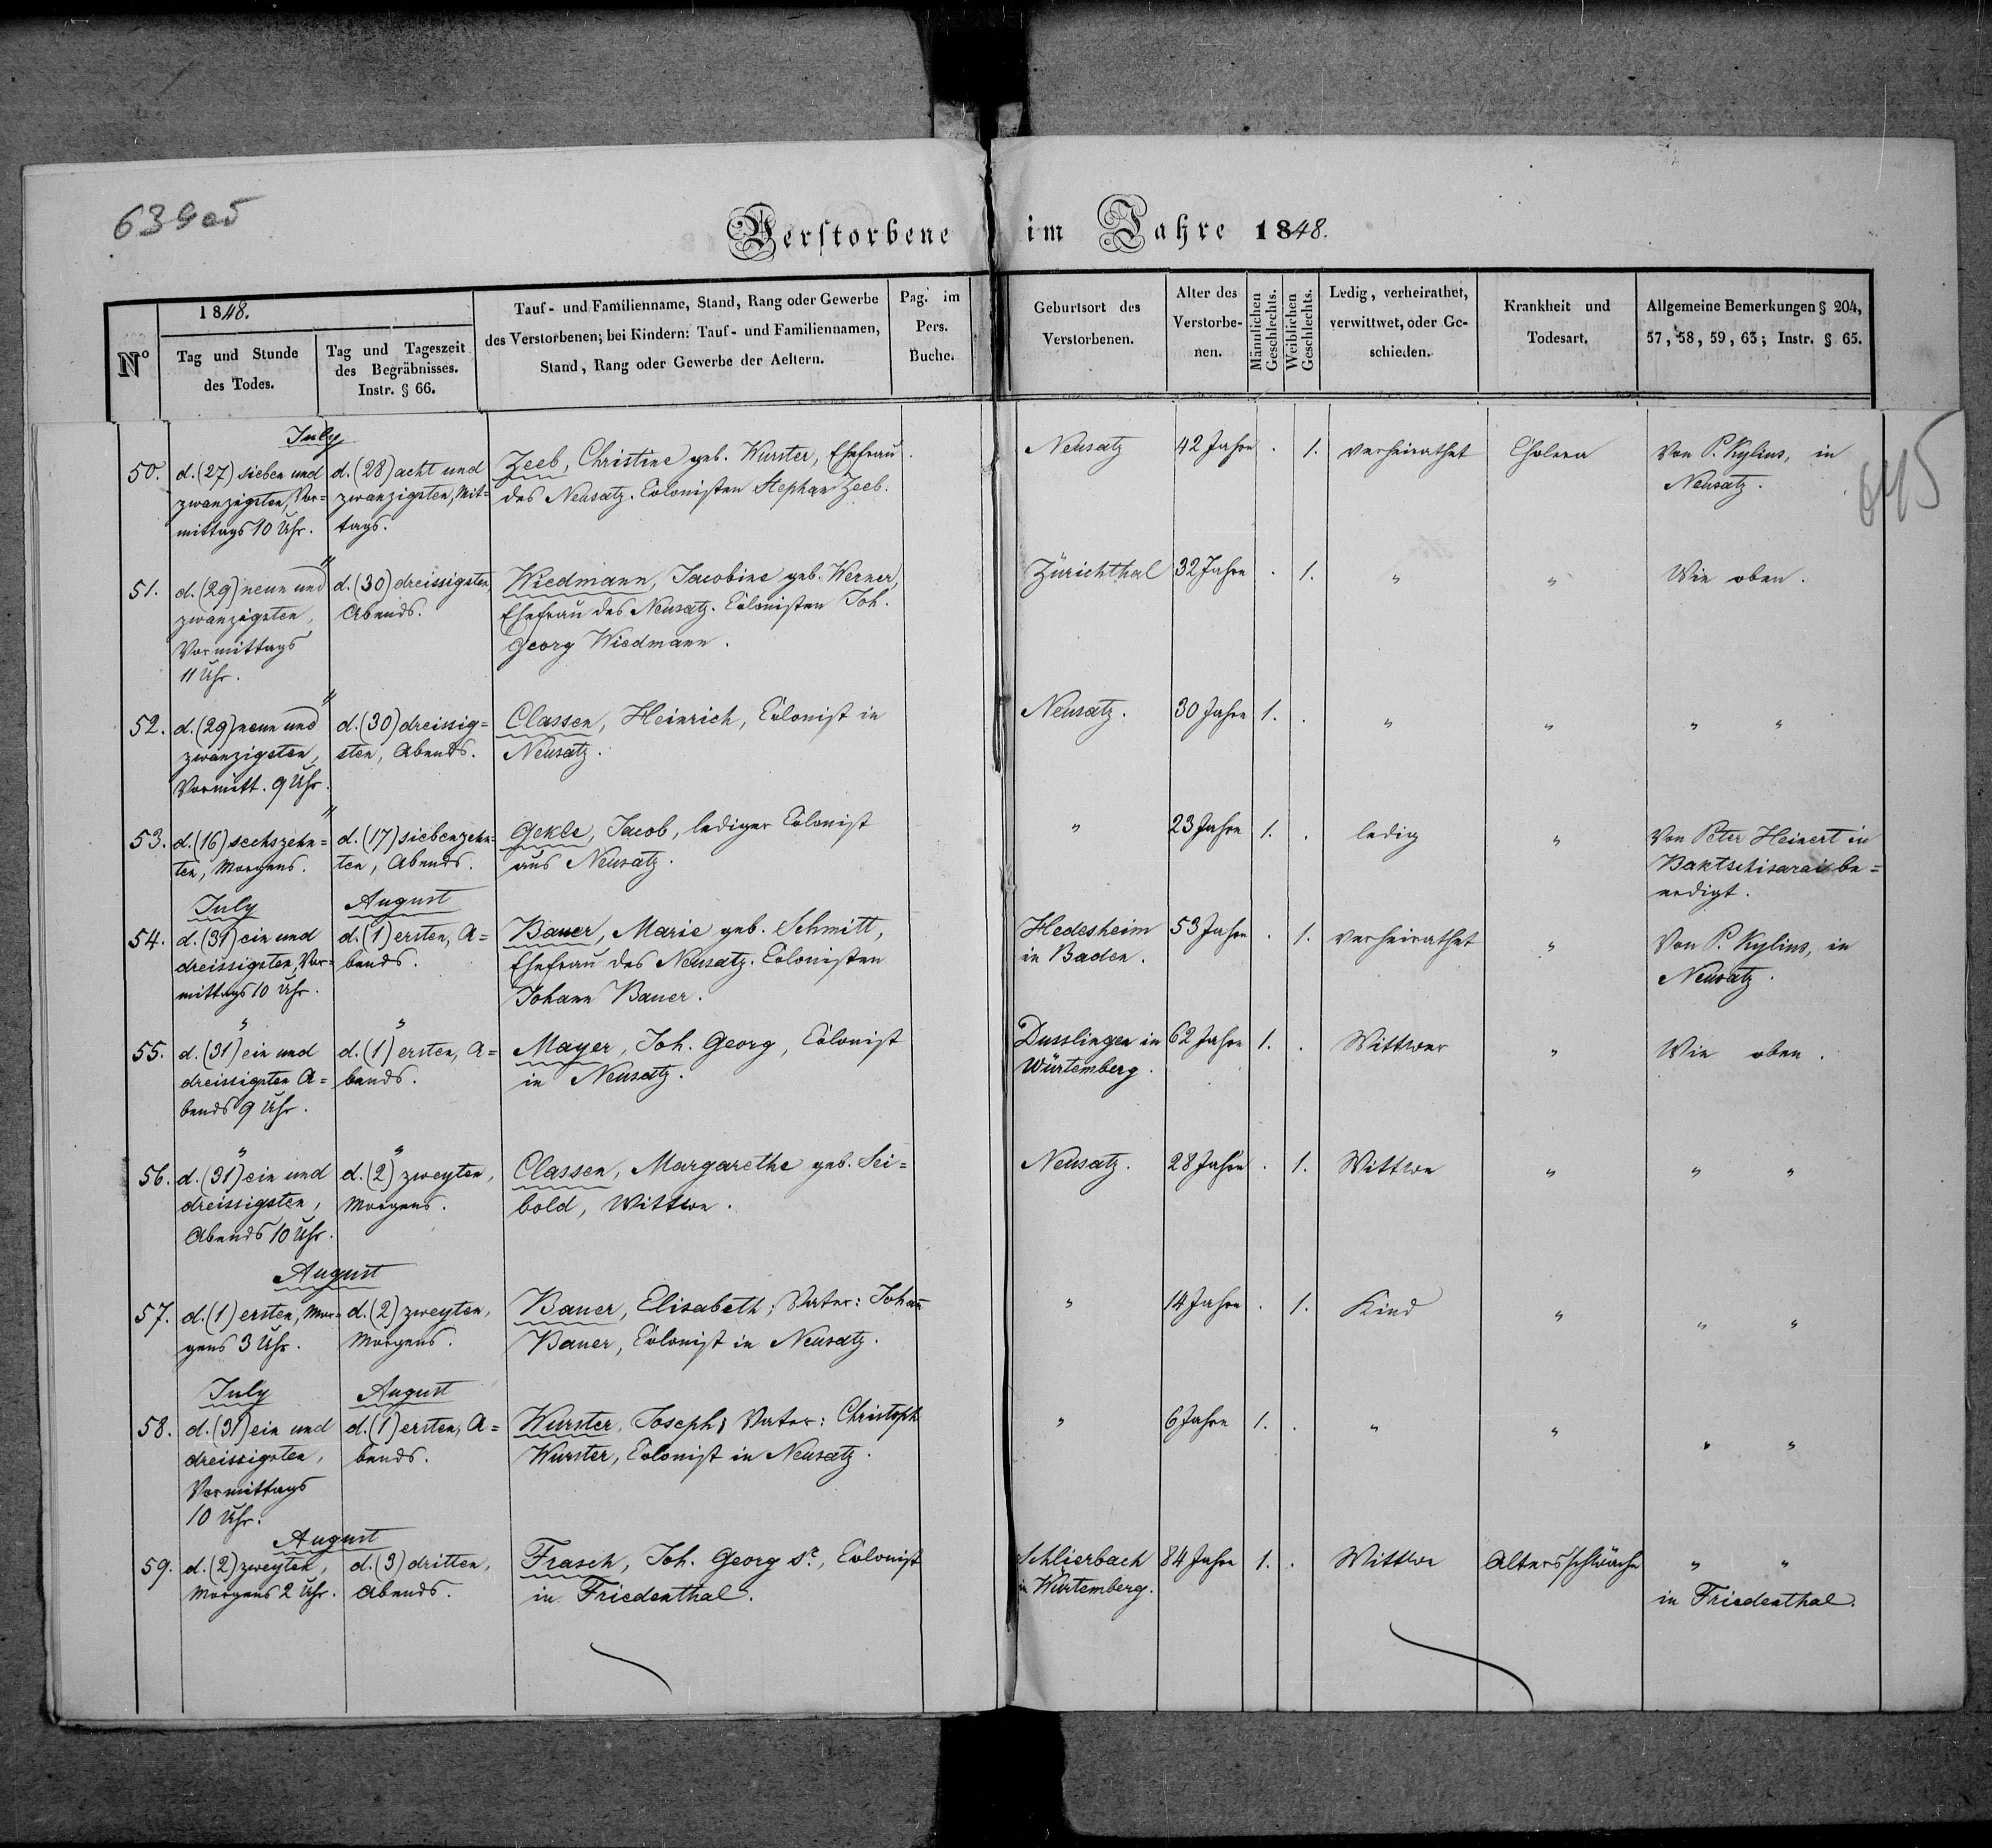 639 об
Verstorbene im Jahre 1848.
1848.
N°
Tag und Stunde
des Todes.
Tag und Tageszeit
des Begräbnisses.
Instr. § 66.
Tauf- und Familienname, Stand, Rang oder Gewerbe
des Verstorbenen; bei Kindern: Tauf- und Familiennamen,
Stand, Rang oder Gewerbe der Aeltern.
Pag. im
Pers.
Buche.
Geburtsort des
Verstorbenen.
Alter des
Verstorbe-
nen.
Männlichen
Geschlechts.
Weiblichen
Geschlechts.
Ledig, verheirathet,
verwittwet, oder Ge-
schieden.
Krankheit und
Todesart.
Allgemeine Bemerkungen § 204,
57, 58, 59, 63; Instr. § 65.
645
July
50.
d. (27) sieben und
zwanzigsten, Vor=
mittags 10 Uhr.
d. (28) acht und
zwanzigsten, Mit=
tags.
Zeeb, Christine geb. Wurster, Ehefrau
des Neusatz. Colonisten Stephan Zeeb.
Neusatz
42 Jahre
.
1.
verheirathet
Cholera
Von P. Kylius, in
Neusatz.
"
51.
d. (29) neun und
zwanzigsten,
Vormittags
11 Uhr.
d. (30) dreissigsten,
Abends.
Wiedmann, Jacobine geb. Werner,
Ehefrau des Neusatz. Colonisten Joh.
Georg Wiedmann.
Zürichthal
32 Jahre
.
1.
"
"
Wie oben.
"
52.
d. (29) neun und
zwanzigsten,
Vormitt. 9 Uhr.
d. (30) dreissig=
sten, Abends.
Classen, Heinrich, Colonist in
Neusatz.
Neusatz.
30 Jahre
1.
.
"
"
" "
"
53.
d. (16) sechszehn=
ten, Morgens.
d. (17) siebenzehn=
ten, Abends.
Gekle, Jacob, lediger Colonist
aus Neusatz.
"
23 Jahre
1.
.
ledig
"
Von Peter Heinert in
Baktschisarai be=
erdigt.
July
August
54.
d. (31) ein und
dreissigsten, Vor=
mittags 10 Uhr.
d. (1) ersten, A=
bends.
Bauer, Marie geb. Schmitt,
Ehefrau des Neusatz. Colonisten
Johann Bauer.
Hedesheim
in Baden.
53 Jahre
.
1.
verheirathet
"
Von P. Kylius, in
Neusatz.
" "
55.
d. (31) ein und
dreissigsten A=
bends 9 Uhr.
d. (1) ersten, A=
bends.
Mayer, Joh. Georg, Colonist
in Neusatz.
Dusslingen in
Würtemberg.
62 Jahre
1.
.
Wittwer
"
Wie oben.
" "
56.
d. (31) ein und
dreissigsten,
Abends 10 Uhr.
d. (2) zweyten,
Morgens.
Classen, Margarethe geb. Sei=
bold, Wittwe.
Neusatz.
28 Jahre
.
1.
Wittwe
"
" "
August
57.
d. (1) ersten, Mor=
gens 3 Uhr.
d. (2) zweyten,
Morgens.
Bauer, Elisabeth; Vater: Johan̄
Bauer, Colonist in Neusatz.
"
14 Jahre
.
1.
Kind
"
" "
July
August
58.
d. (31) ein und
dreissigsten,
Vormittags
10 Uhr.
d. (1) ersten, A=
bends.
Wurster, Joseph; Vater: Christoph
Wurster, Colonist in Neusatz.
"
6 Jahre
1.
.
"
"
" "
August
59.
d. (2) zweyten,
Morgens 2 Uhr.
d. (3) dritten,
Abends.
Frasch, Joh. Georg sr., Colonist
in Friedenthal.
Schlierbach
in Würtemberg.
84 Jahre
1.
.
Wittwe
Altersschwäche
" "
in Friedenthal.